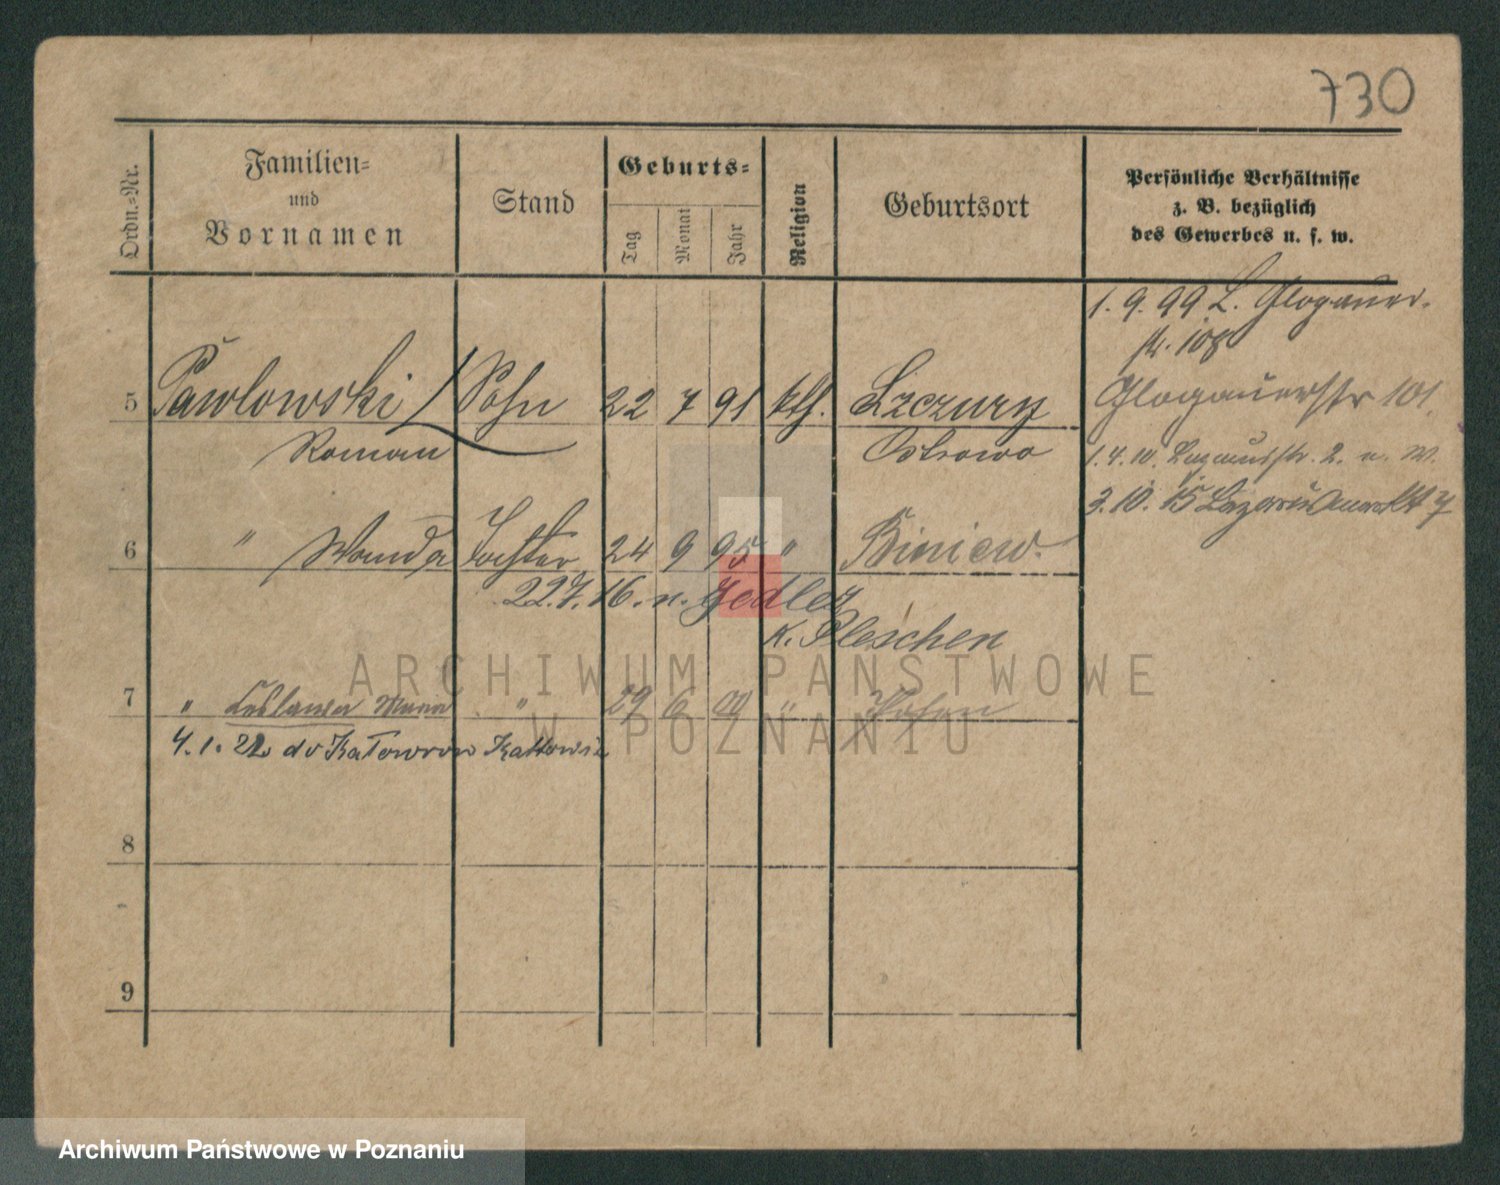 730
Ordn.-Nr.
Familien-
und
Vornamen
Stand
Geburts-
Tag
Monat
Jahr
Religion
Geburtsort
Persönliche Verhältnisse
z. B. bezüglich
des Gewerbes u. s. w.
1. 9. 99 L. Glogauer-
str. 108
5 Pawlowski Sohn 22 7 91 kth. Szczury
Glogauerstr 101.
Roman Ostrowo
1. 4. 10. str. 2. n. W.
3. 10. 15 7
6 " Wanda Tochter 24 9 95 " Biniew.
22.7.16. n. Jedlez
K. Pleschen
7 " Maria " 29 6 " Posen
4. 1. 22 do Katowic Kattowiz
8
9
ARCHIWUM PAŃSTWOWE
W POZNANIU
Archiwum Państwowe w Poznaniu